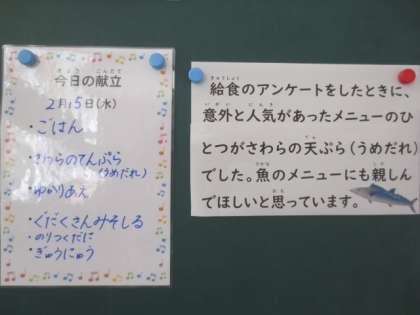 今日の献立
2月15日(水)
・ごはん
・さわらのてんぷら
(うめだれ)
・ゆかりあえ
・ぐだくさんみそしる
・のりつくだに
・ぎゅうにゅう
給食のアンケートをしたときに、
意外と人気があったメニューのひ
とつがさわらの天ぷら(うめだれ)
でした。魚のメニューにも親しん
でほしいと思っています。